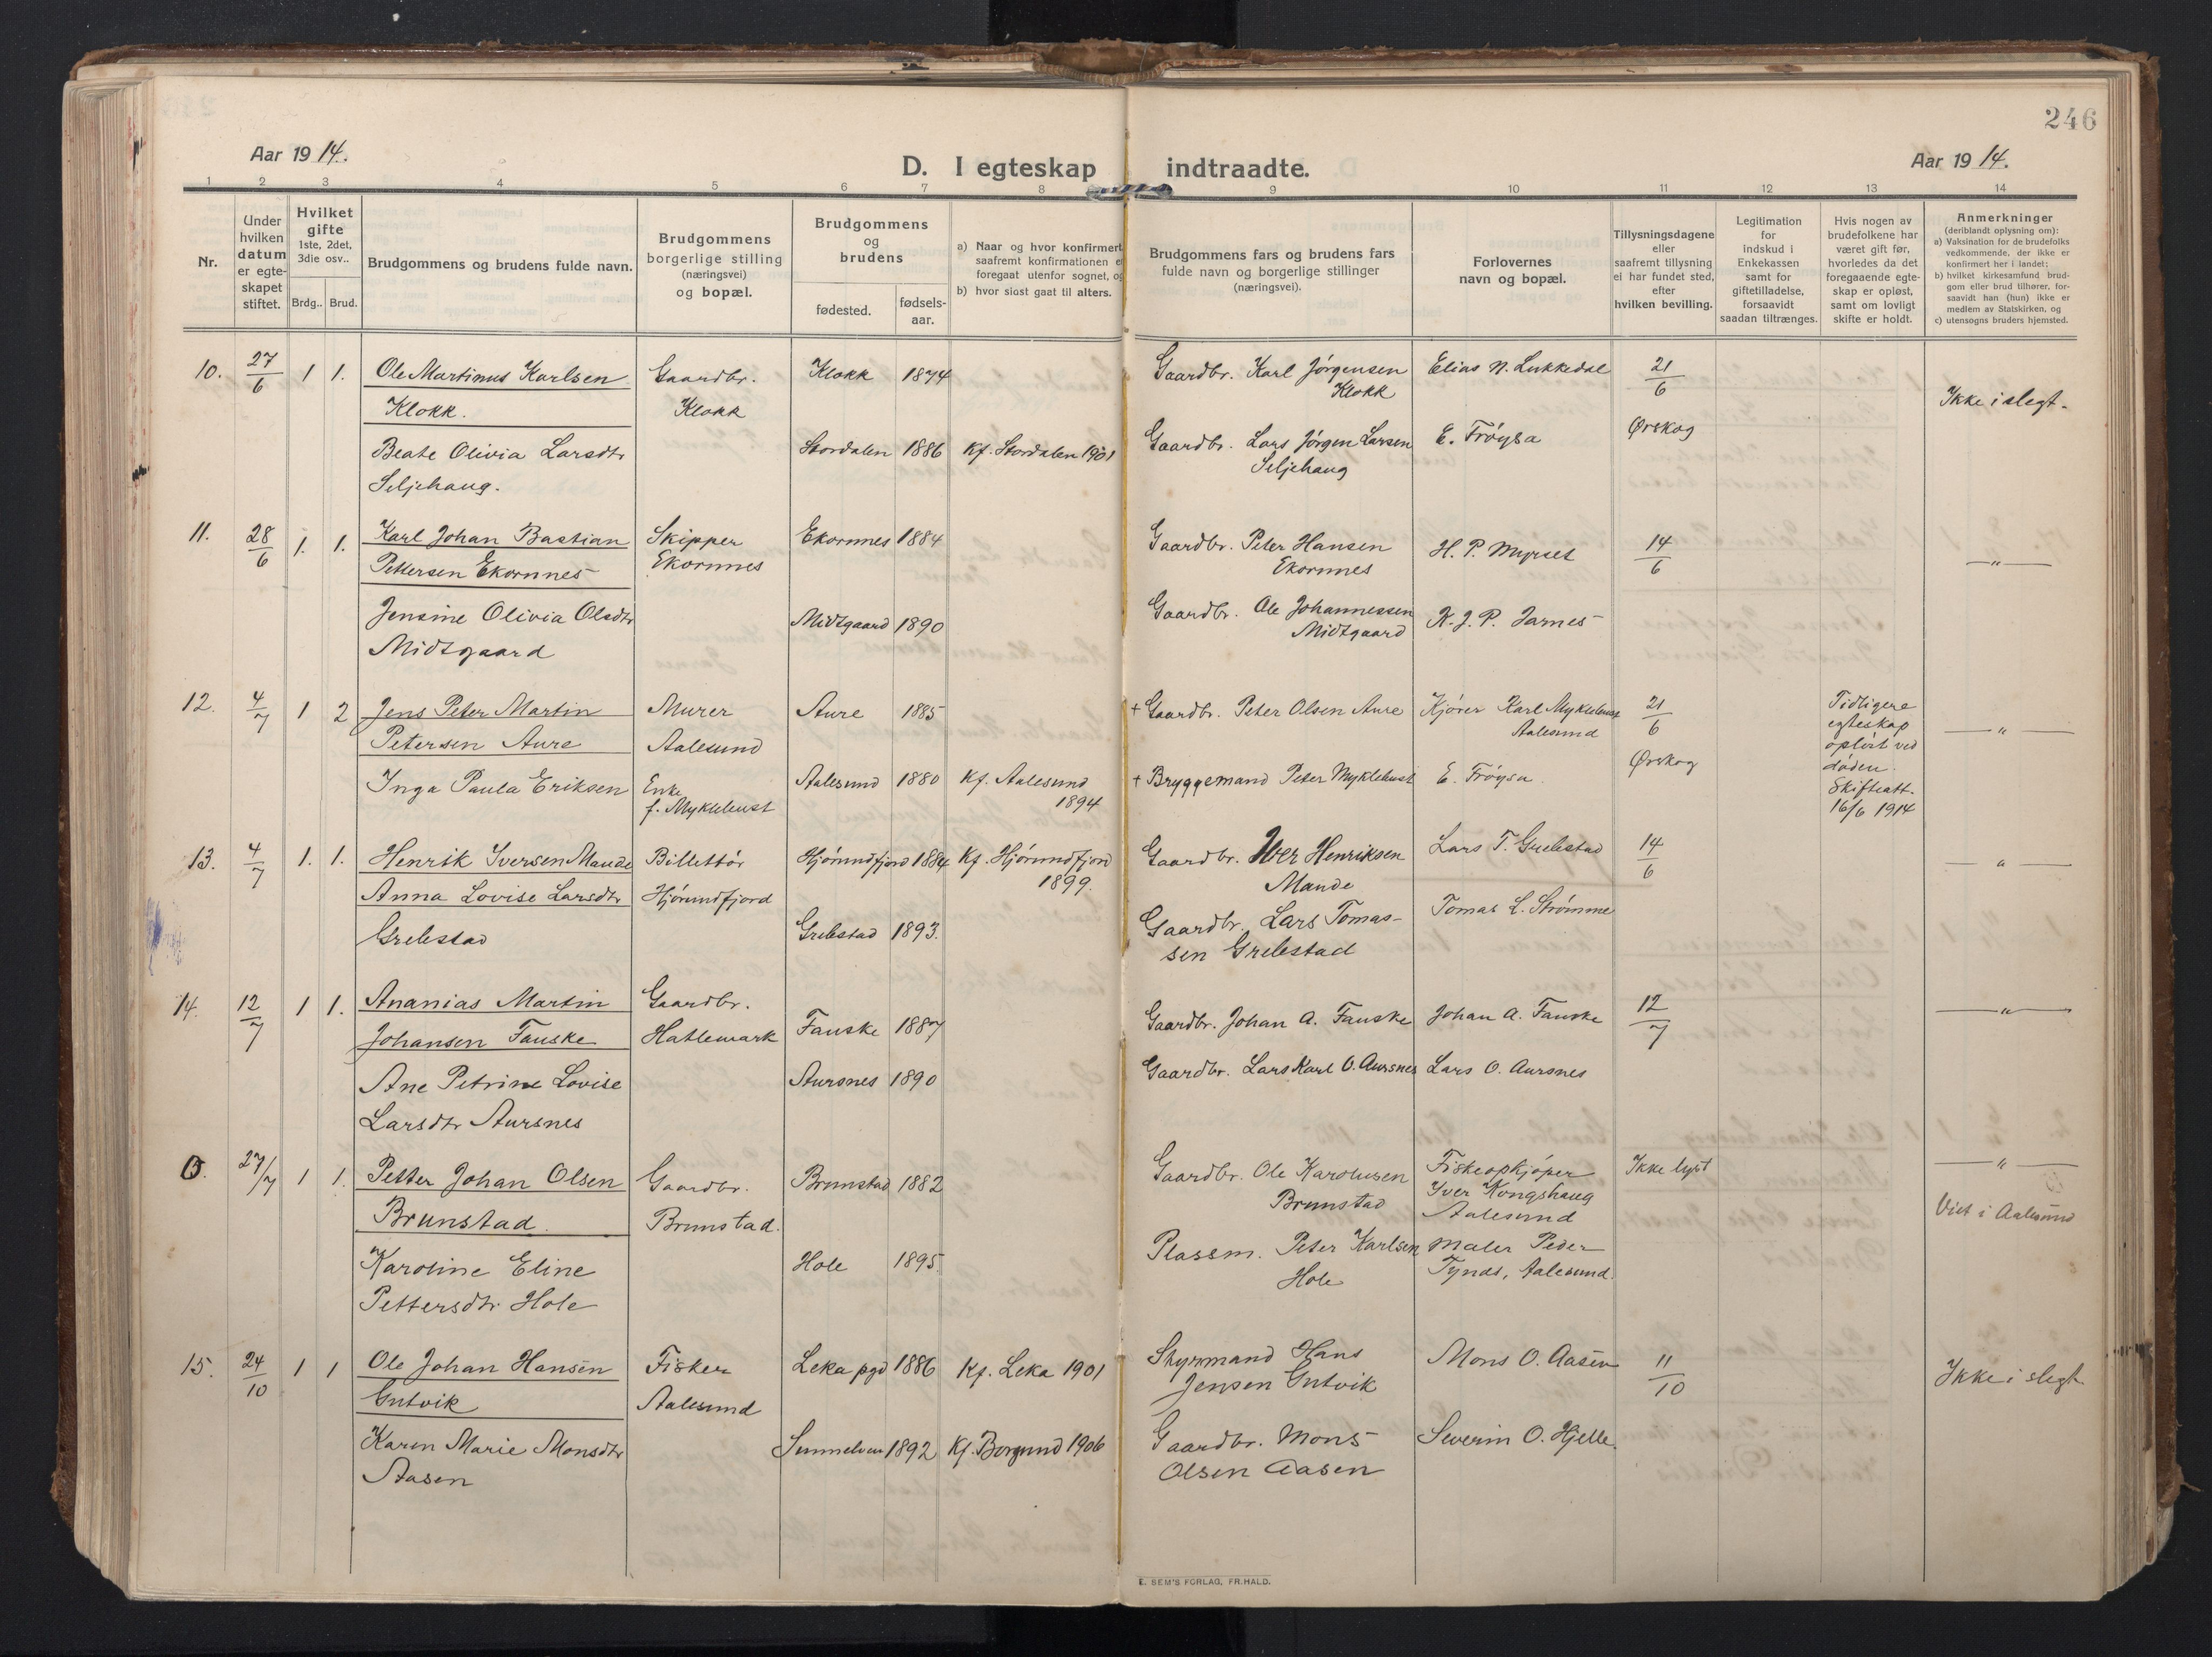 246
Aar 1914.
D. I egteskap indtraadte.
Aar 1914.
1 2 3 4 5 6 7 8 9 10 11 12 13 14
Nr.
Under hvilken datum er egte-skapet stiftet.
Hvilket gifte
1ste, 2det, 3die osv..
Brdg.. Brud.
Brudgommens og brudens fulde navn.
Brudgommens borgerlige stilling (næringsvei) og bopæl.
Brudgommens og brudens
fødested. fødsels-aar.
a) Naar og hvor konfirmert saafremt konfirmationen ei foregaat utenfor sognet, og
b) hvor sidst gaat til alters.
Brudgommens fars og brudens fars
fulde navn og borgerlige stillinger
(næringsvei).
Forlovernes
navn og bopæl.
Tillysningsdagene
eller
saafremt tillysning
ei har fundet sted,
efter
hvilken bevilling.
Legitimation
for
indskud i
Enkekassen
samt for
giftetilladelse,
forsaavidt
saadan tiltrænges.
Hvis nogen av
brudefolkene har
været gift før,
hvorledes da det
foregaaende egte-
skap er opløst,
samt om lovligt
skifte er holdt.
Anmerkninger
(deriblandt oplysning om):
a) Vaksination for de brudefolks
vedkommende, der ikke er
konfirmert her i landet;
b) hvilket kirkesamfund brud-
gom eller brud tilhører, for-
saavidt han (hun) ikke er
medlem av Statskirken, og
c) utensogns bruders hjemsted.
10. 27/6 1 1. Ole Martinus Karlsen Gaardbr. Klokk 1874 Gaardbr. Karl Jørgensen Elias N. Lukkedal 21/6
Klokk. Klokk Klokk Ikke i slegt.
Beate Olivia Larsdtr Stordalen 1886 Kf. Stordalen 1901 Gaardbr. Lars Jørgen Larsen E. Frøysa Ørskog
Seljehaug. Seljehaug
11. 28/6 1. 1. Karl Johan Bastian Skipper Ekornnes 1884 Gaardbr. Peter Hansen H. P. Myrset 14/6
Pettersen Ekornnes Ekornnes Ekornnes — " —
Jensine Olivia Olsdtr Midtgaard 1890 Gaardbr. Ole Johannessen K. J. P. Jarnes
Midtgaard Midtgaard
12. 4/7 1 2 Jens Peter Martin Murer Aure 1885 + Gaardbr. Peter Olsen Aure Kjører Karl Myklebust 21/6 Tidligere
Petersen Aure Aalesund Aalesund egteskap — " —
opløst ved
Inga Paula Eriksen Enke Aalesund 1880 Kf. Aalesund + Bryggemand Peter Myklebust E. Frøysa. Ørskog døden.
f. Myklebust 1894 Skifteatt.
16/6 1914
13. 4/7 1. 1. Henrik Iversen Maude Billettør Hjørundfjord 1884 Kf. Hjørundfjord Gaardbr. Iver Henriksen Lars T. Grebstad 14/6 — " —
Anna Lovise Larsdtr Hjørundfjord 1899. Mande
Grebstad Grebstad 1893. Gaardbr. Lars Tomas- Tomas L. Strømme
sen Grebstad
14. 12/7 1 1. Ananias Martin Gaardbr. — " —
Johansen Fauske Hatlemark Fauske 1887 Gaardbr. Johan A. Fauske Johan A. Fauske 12/7
Ane Petrine Lovise Aursnes 1890 Gaardbr. Lars Karl O. Aursnes Lars O. Aursnes
Larsdtr Aursnes
0. 27/7 1 1. Petter Johan Olsen Gaardbr. Brunstad 1882 Gaardbr. Ole Karolusen Fiskeopkjøper Ikke lyst — " —
Brunstad. Brunstad. Brunstad Iver Kongshaug
Aalesund Viet i Aalesund
Karoline Eline Hole 1895. Plassm. Peter Karlsen Maler Peder
Pettersdtr Hole Hole Tynds, Aalesund.
15. 24/10 1 1 Ole Johan Hansen Fisker Leka pgd 1886 Kf. Leka 1901 Styrmand Hans Mons O. Aasen 11/10 Ikke i slegt
Gutvik Aalesund Jensen Gutvik
Karen Marie Monsdtr 1892 Kf. Borgund 1906 Gaardbr. Mons Severin O. Hjelle.
Aasen Olsen Aasen
E. SEM'S FORLAG, FR.HALD.